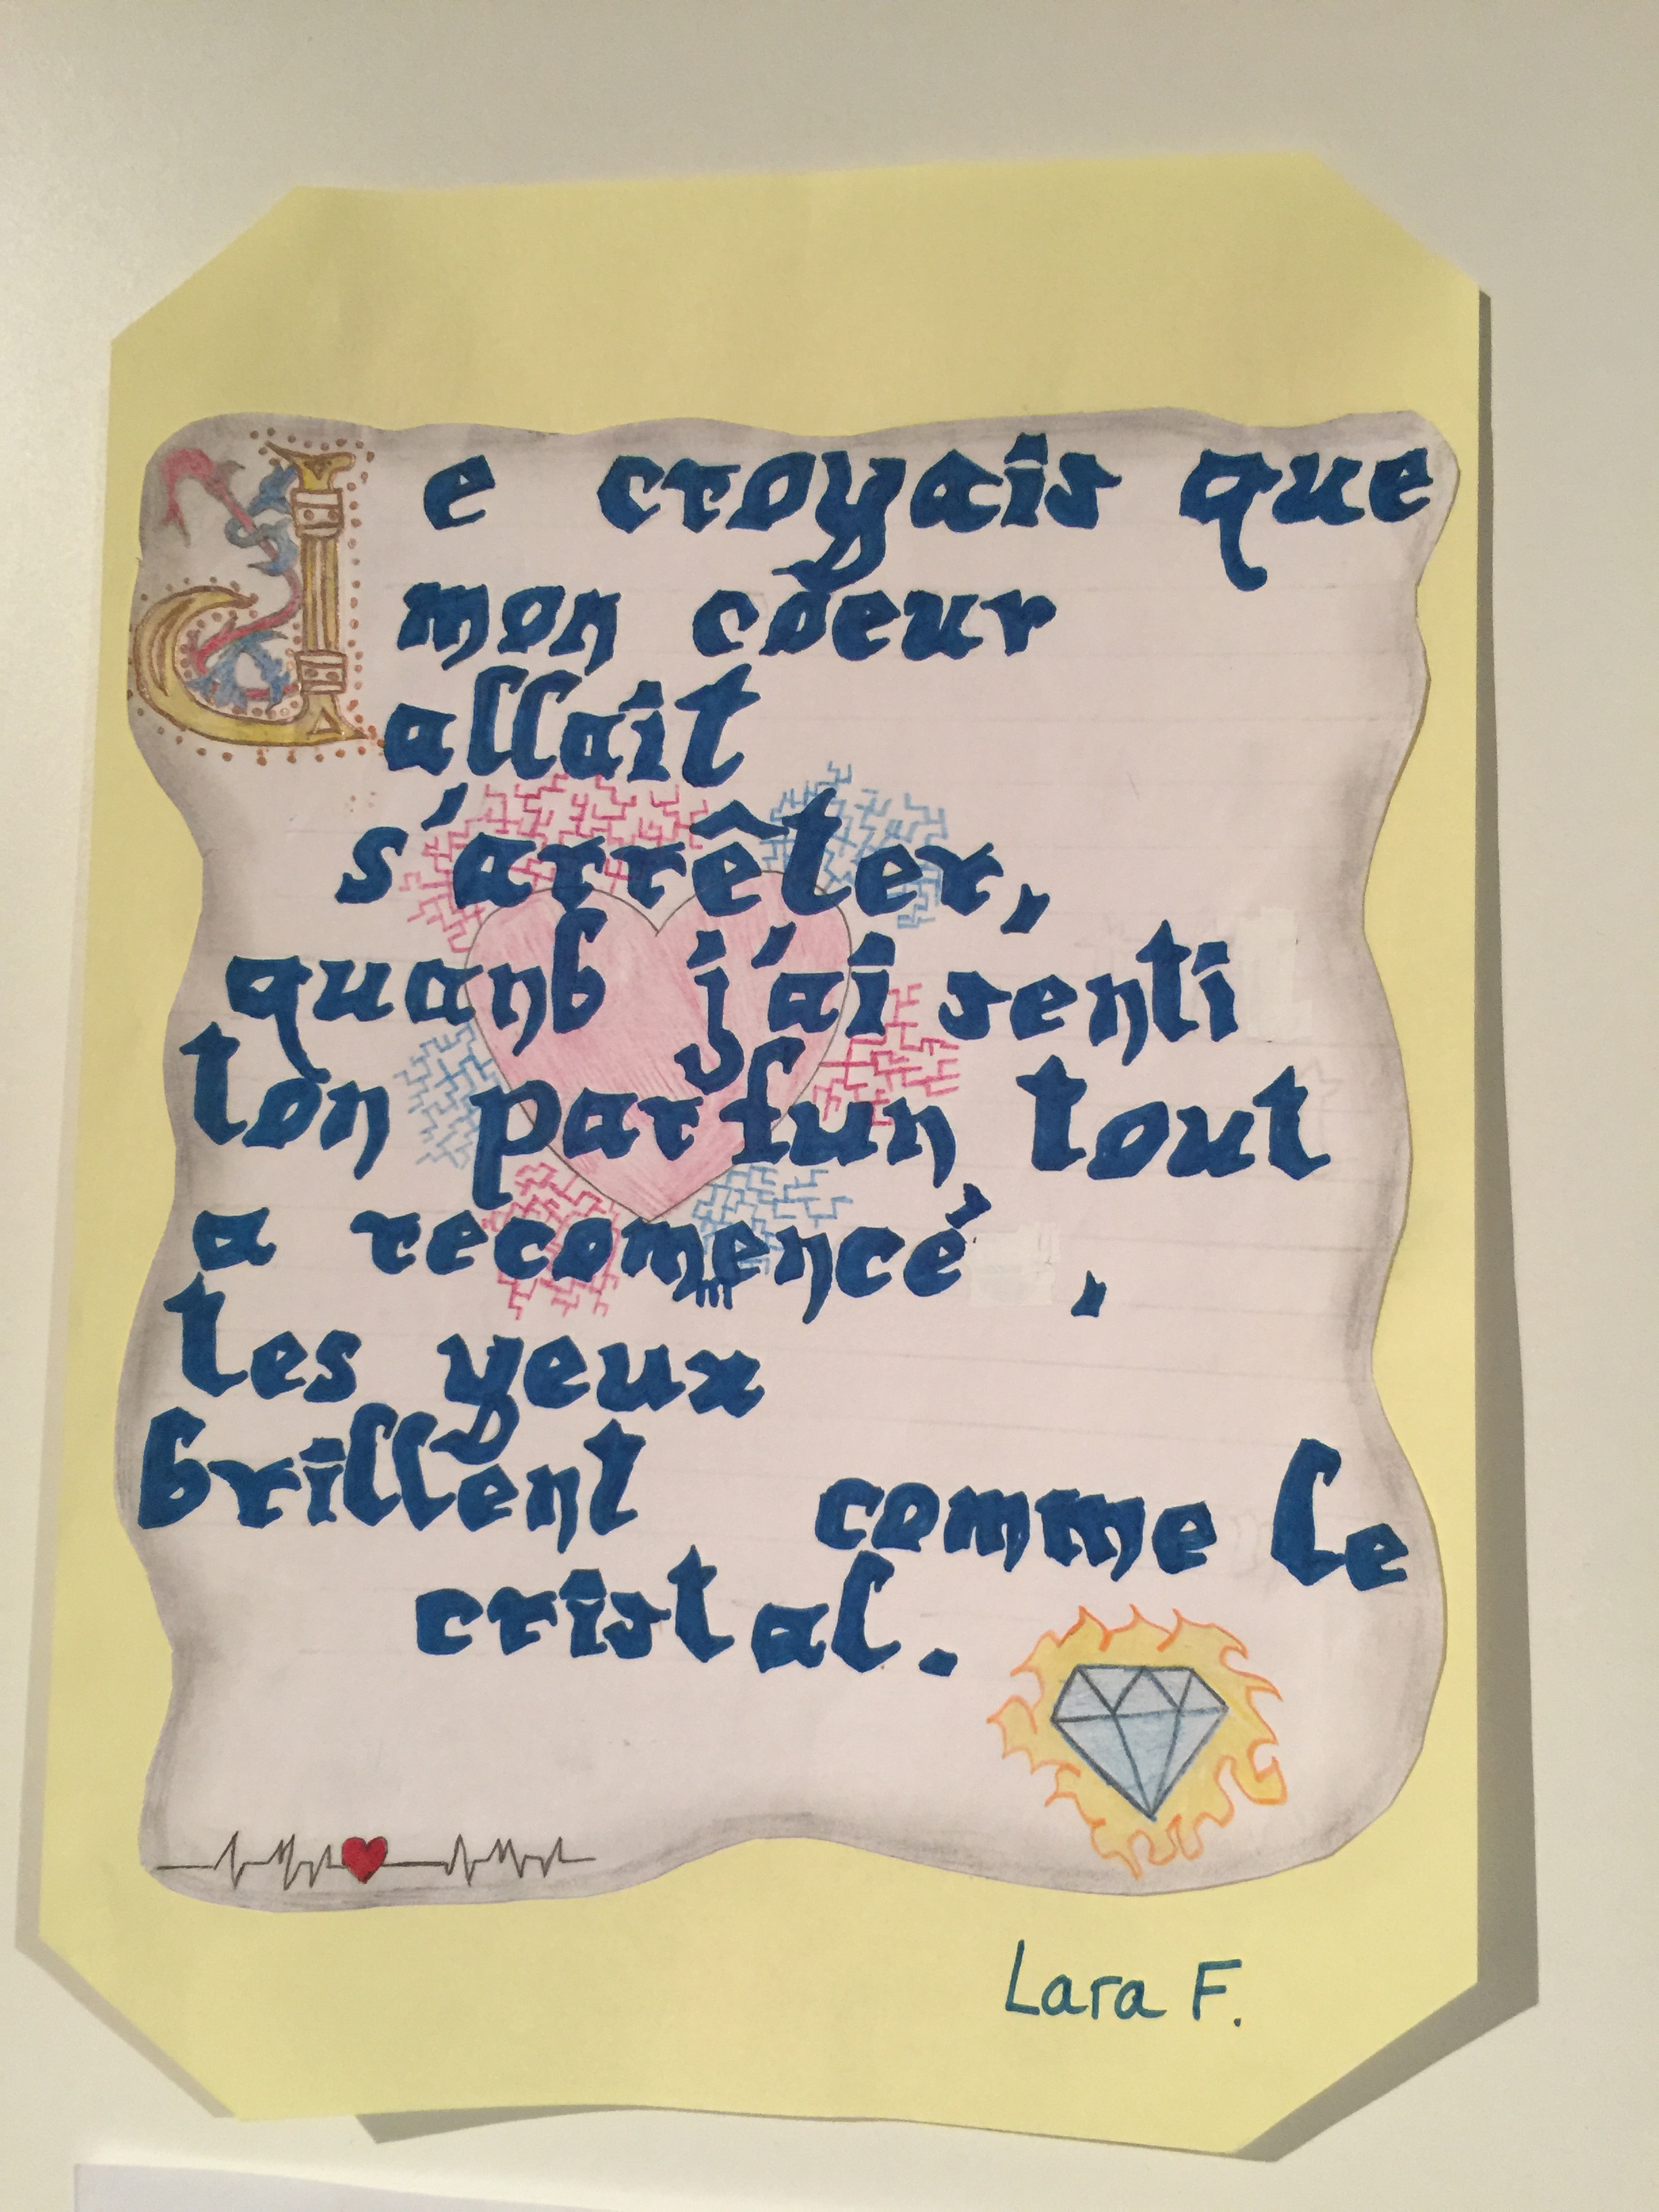 Je croyais que
mon coeur
allait
s'arrêter,
quand j'ai senti
ton parfun tout
a recommencé,
tes yeux
brillent comme le
cristal.
Lara F.